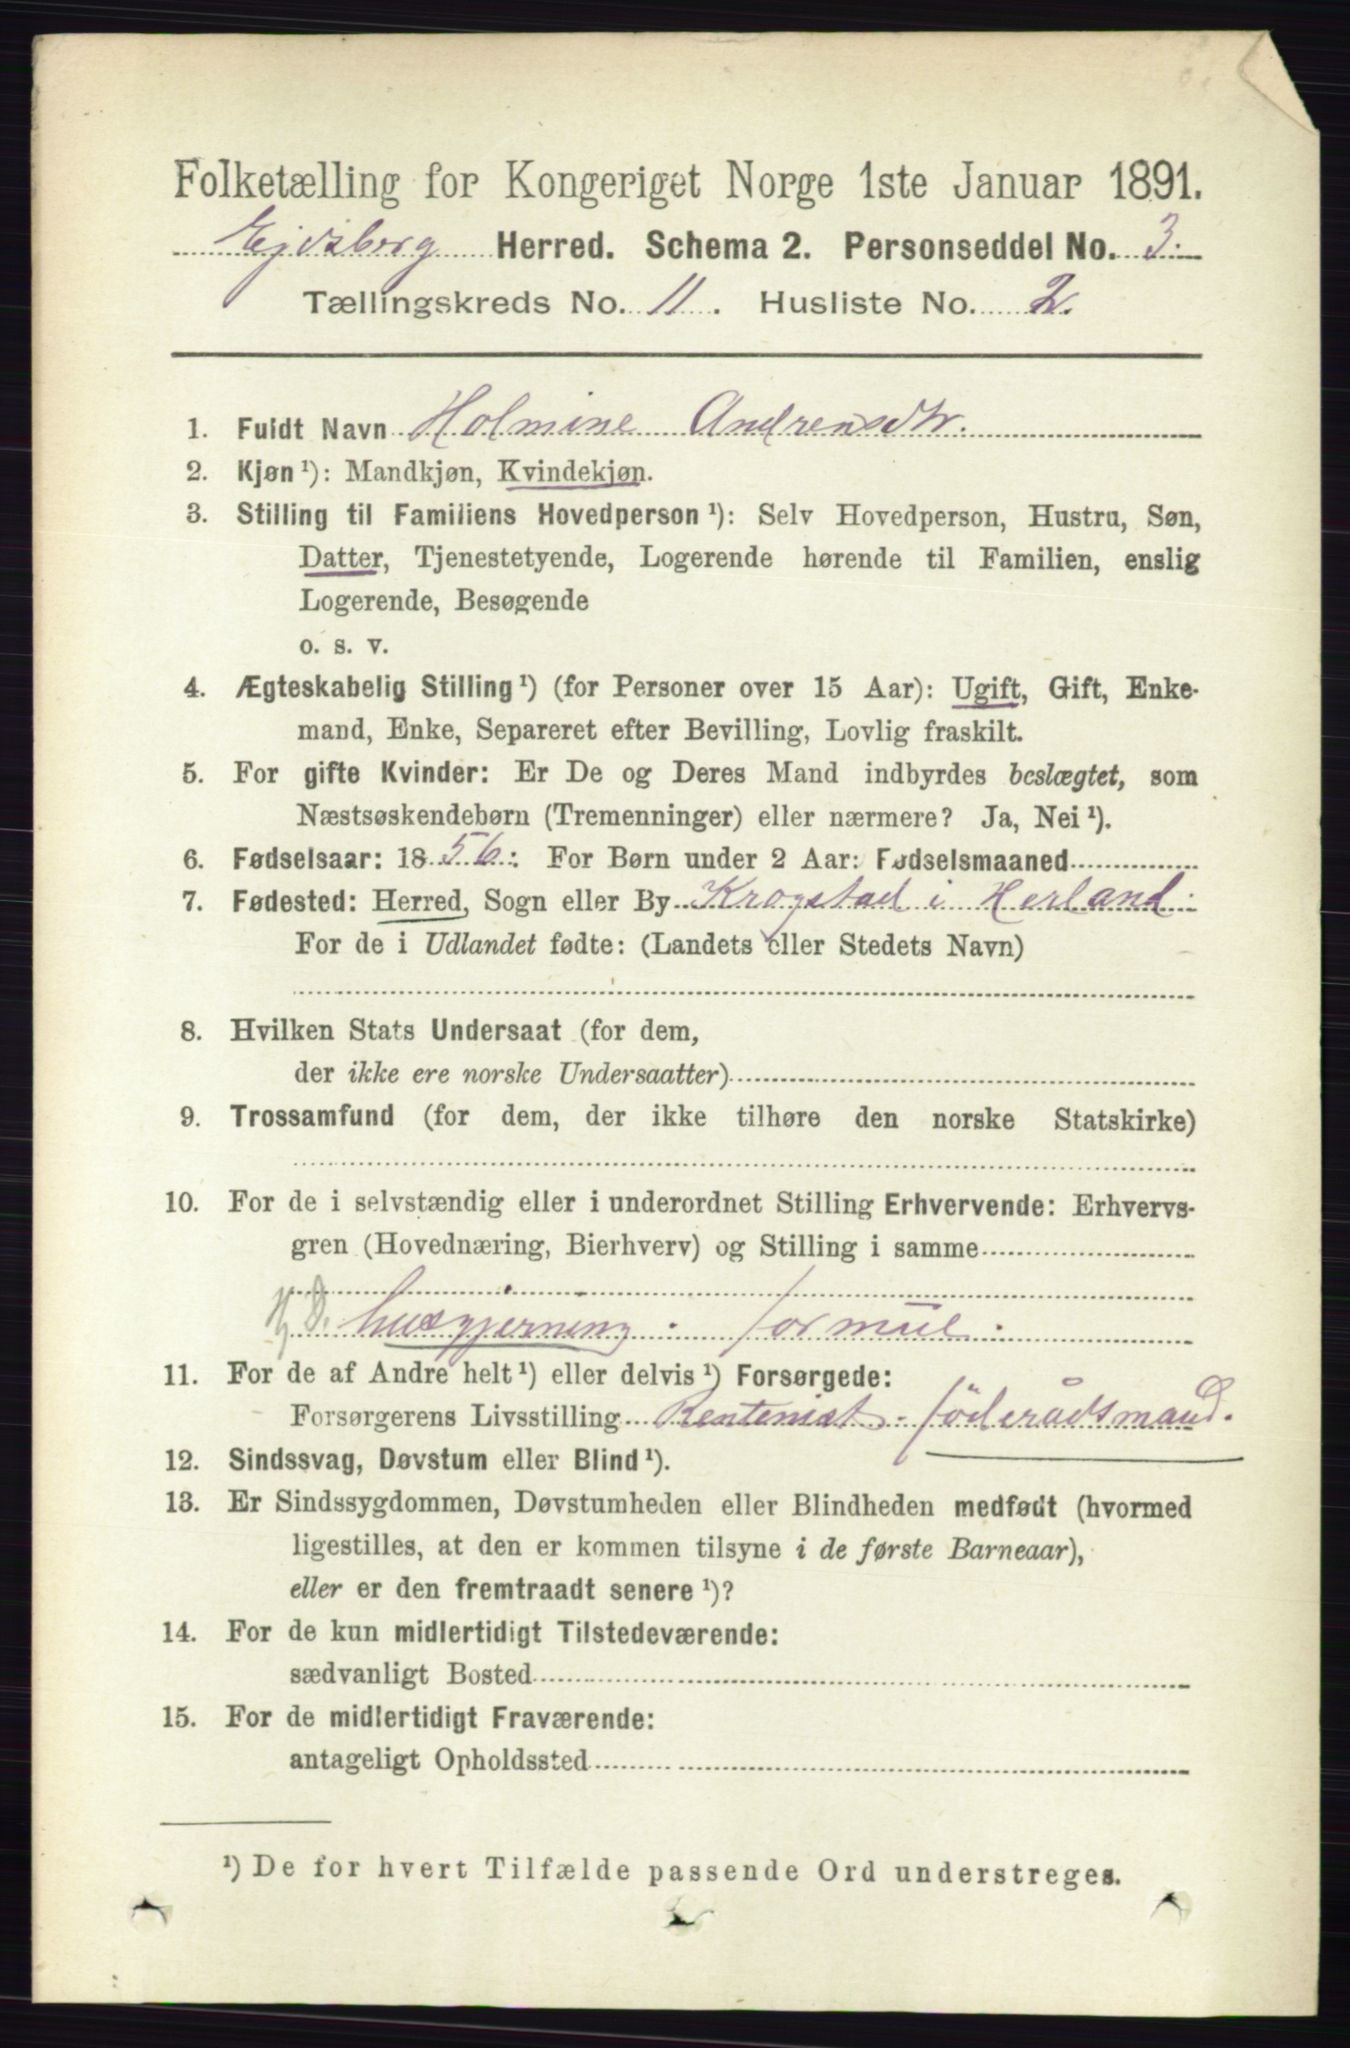 Folketælling for Kongeriget Norge 1ste Januar 1891.
Ejdsberg Herred. Schema 2. Personseddel No. 3.
Tællingskreds No. 11. Husliste No. 2.
1. Fuldt Navn Holmine Andrensdtr.
2. Kjøn ¹): Mandkjøn, Kvindekjøn.
3. Stilling til Familiens Hovedperson ¹): Selv Hovedperson, Hustru, Søn,
Datter, Tjenestetyende, Logerende hørende til Familien, enslig
Logerende, Besøgende
o. s. v.
4. Ægteskabelig Stilling ¹) (for Personer over 15 Aar): Ugift, Gift, Enke-
mand, Enke, Separeret efter Bevilling, Lovlig fraskilt.
5. For gifte Kvinder: Er De og Deres Mand indbyrdes beslægtet, som
Næstsøskendebørn (Tremenninger) eller nærmere? Ja, Nei ¹).
6. Fødselsaar: 1856: For Børn under 2 Aar: Fødselsmaaned
7. Fødested: Herred, Sogn eller By Krogstad i Herland
For de i Udlandet fødte: (Landets eller Stedets Navn)
8. Hvilken Stats Undersaat (for dem,
der ikke ere norske Undersaatter)
9. Trossamfund (for dem, der ikke tilhøre den norske Statskirke)
10. For de i selvstændig eller i underordnet Stilling Erhvervende: Erhvervs-
gren (Hovednæring, Bierhverv) og Stilling i samme
husgjerning.
11. For de af Andre helt ¹) eller delvis ¹) Forsørgede:
Forsørgerens Livsstilling Rentenist. föderådsmand.
12. Sindssvag, Døvstum eller Blind ¹).
13. Er Sindssygdommen, Døvstumheden eller Blindheden medfødt (hvormed
ligestilles, at den er kommen tilsyne i de første Barneaar),
eller er den fremtraadt senere ¹)?
14. For de kun midlertidigt Tilstedeværende:
sædvanligt Bosted
15. For de midlertidigt Fraværende:
antageligt Opholdssted
¹) De for hvert Tilfælde passende Ord understreges.